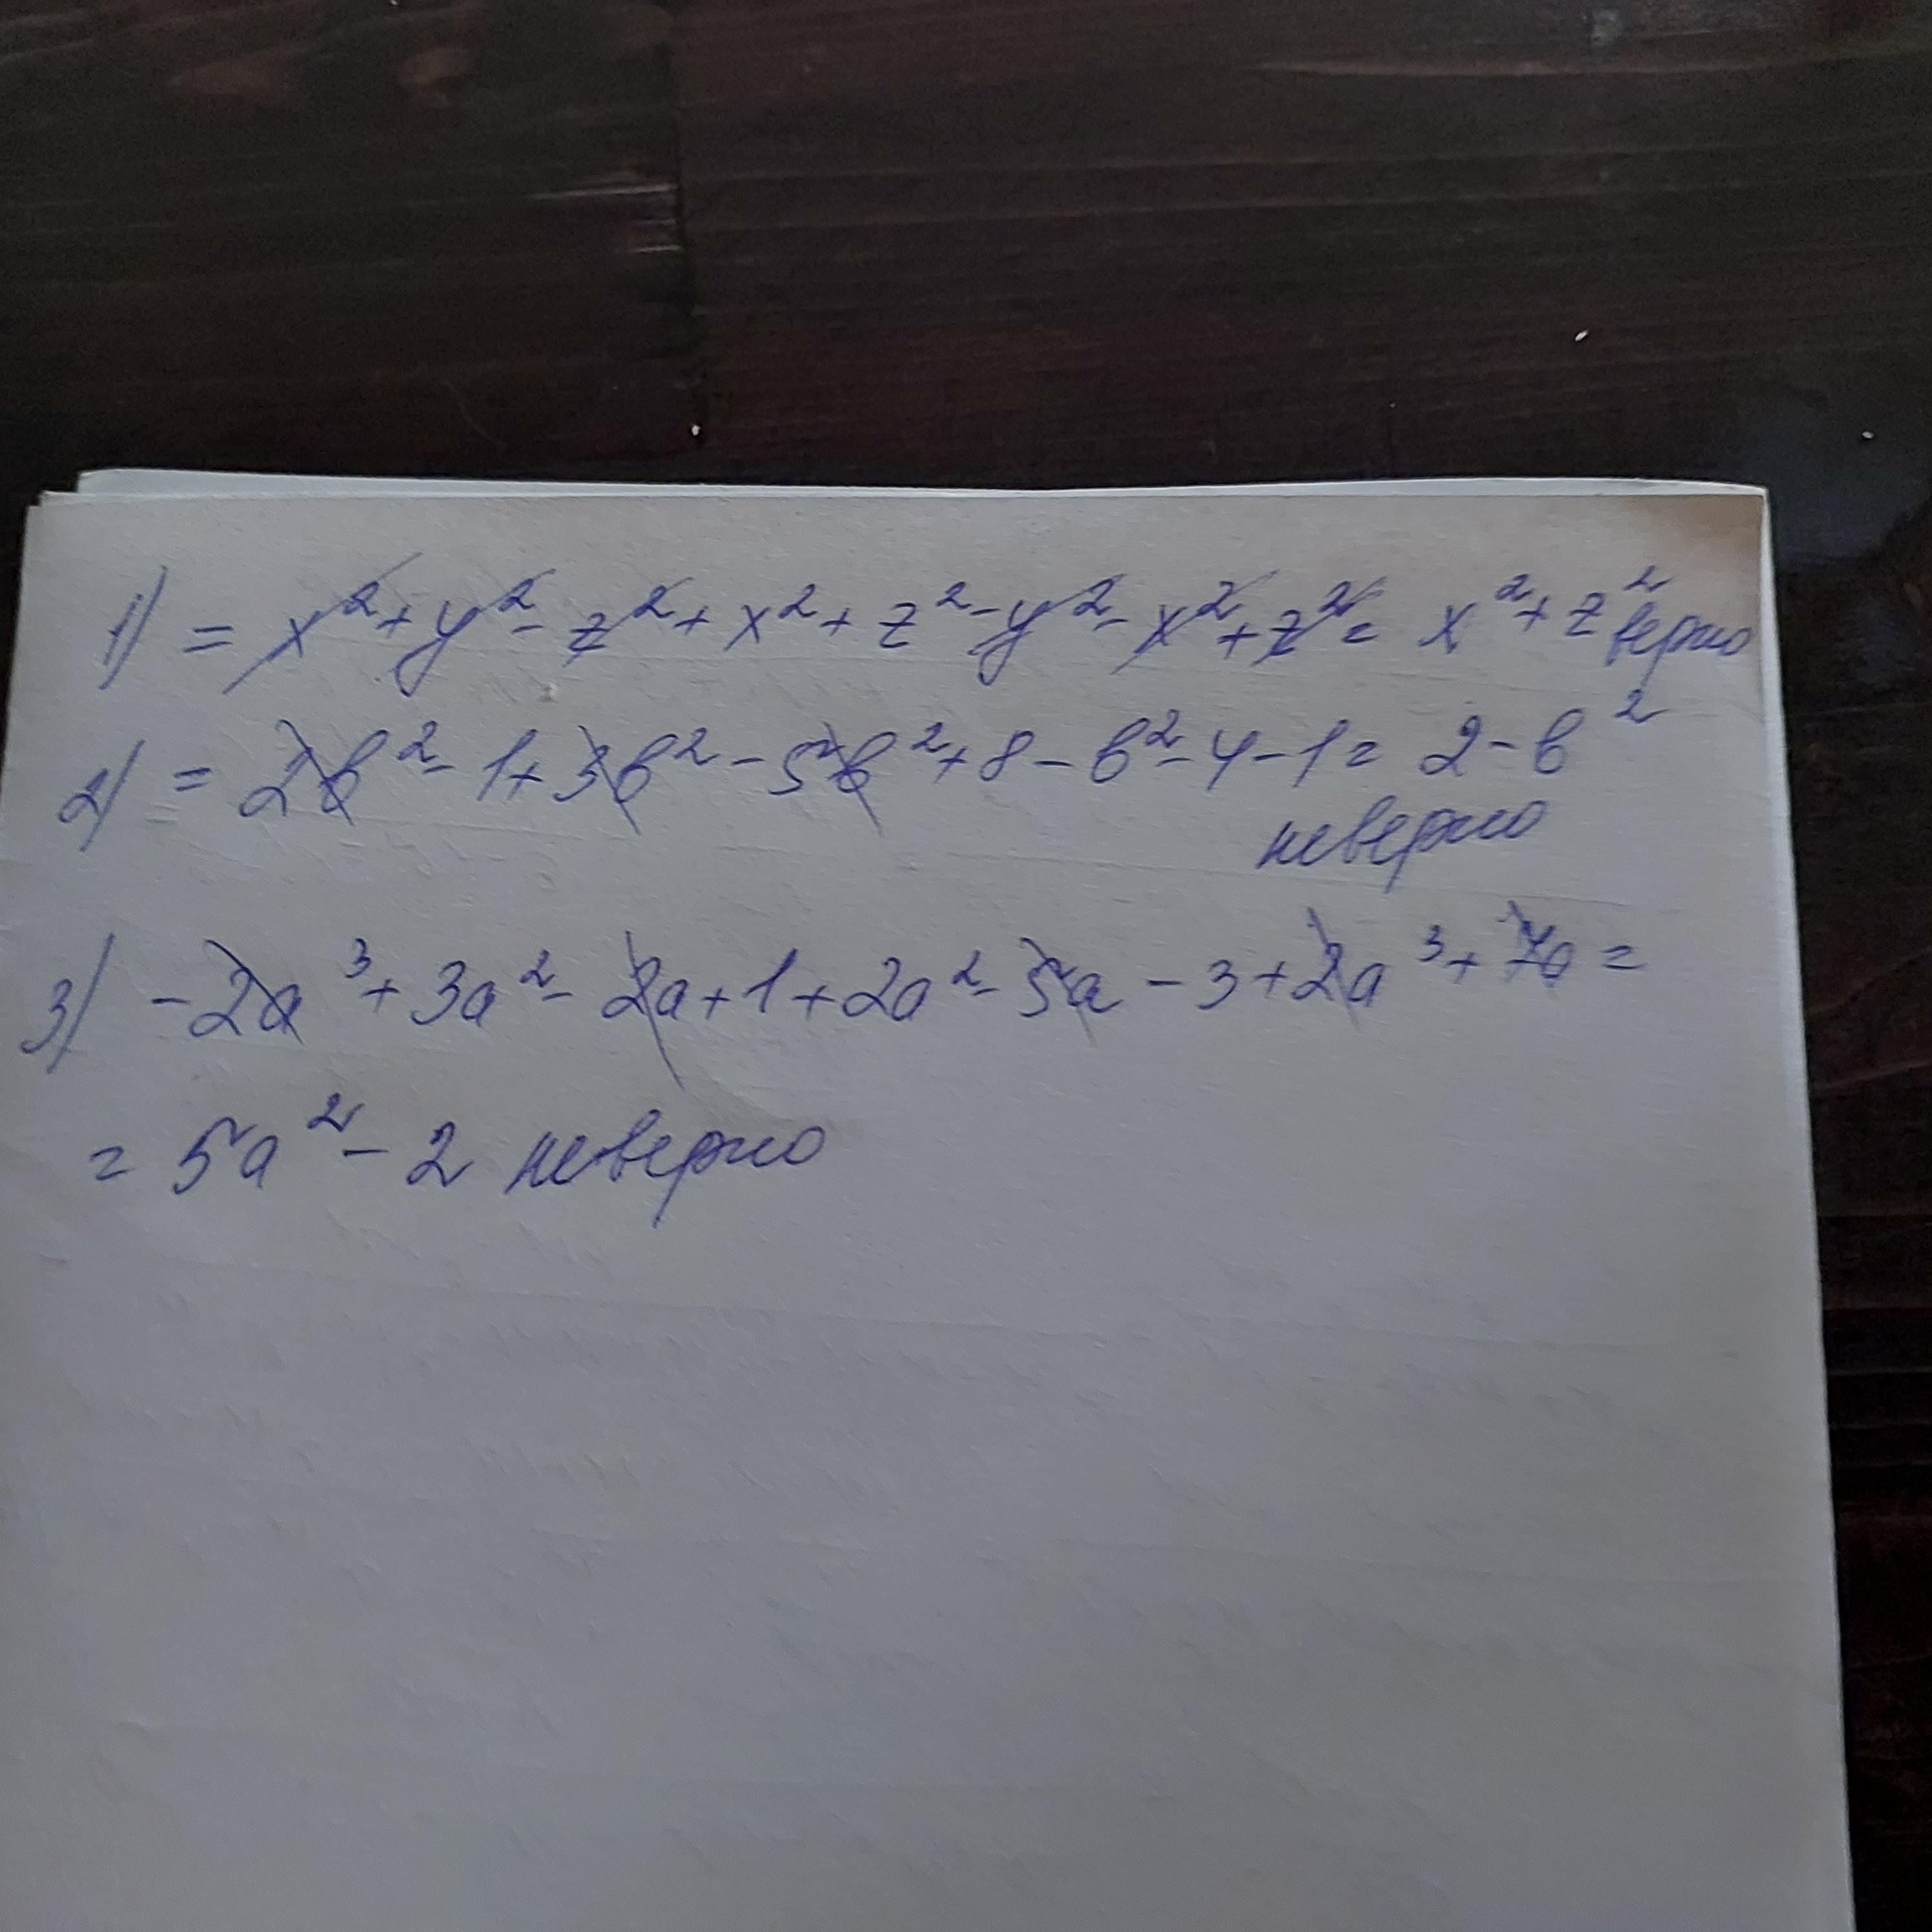 1) = x² + y² - z² + x² + z² - y² - x² + z² = x² + z² верно
2) = 2в² - 1 + 3в² - 5в² + 8 - в² - 4 - 1 = 2 - в²
неверно
3) - 2а³ + 3а² - 2а + 1 + 2а² - 5а - 3 + 2а³ + 7а =
= 5а² - 2 неверно